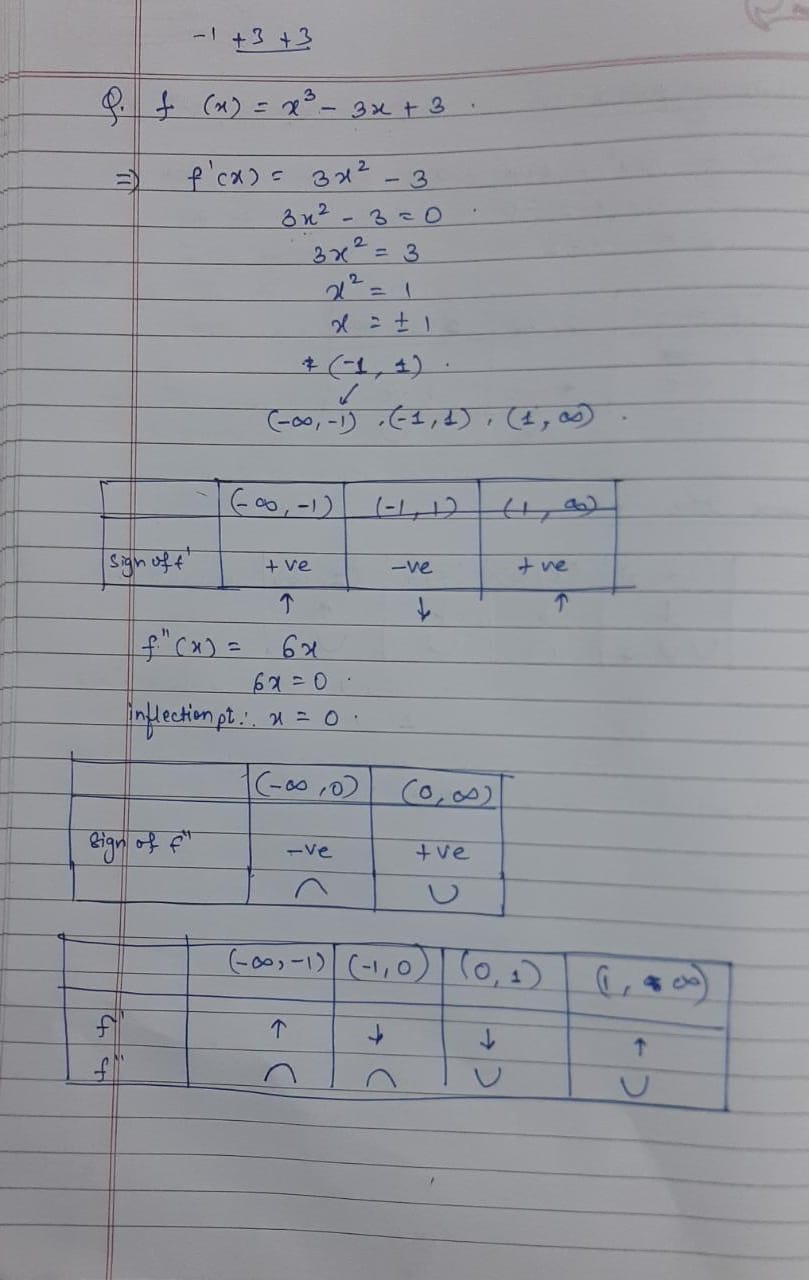 -1 +3 +3
Q. f (x) = x³ - 3x + 3 .
⇒ f'(x) = 3x² - 3
3x² - 3 = 0 .
3x² = 3
x² = 1
x = ± 1
(-1, 1) .
↙
(-∞, -1) , (-1, 1) , (1, ∞) .
(-∞, -1) (-1, 1) (1, ∞)
Sign of f' +ve -ve +ve
↑ ↓ ↑
f"(x) = 6x
6x = 0 .
inflection pt ∴ x = 0 .
(-∞, 0) (0, ∞)
Sign of f" -ve +ve
∩ ∪
(-∞, -1) (-1, 0) (0, 1) (1, ∞)
f' ↑ ↓ ↓ ↑
f" ∩ ∩ ∪ ∪